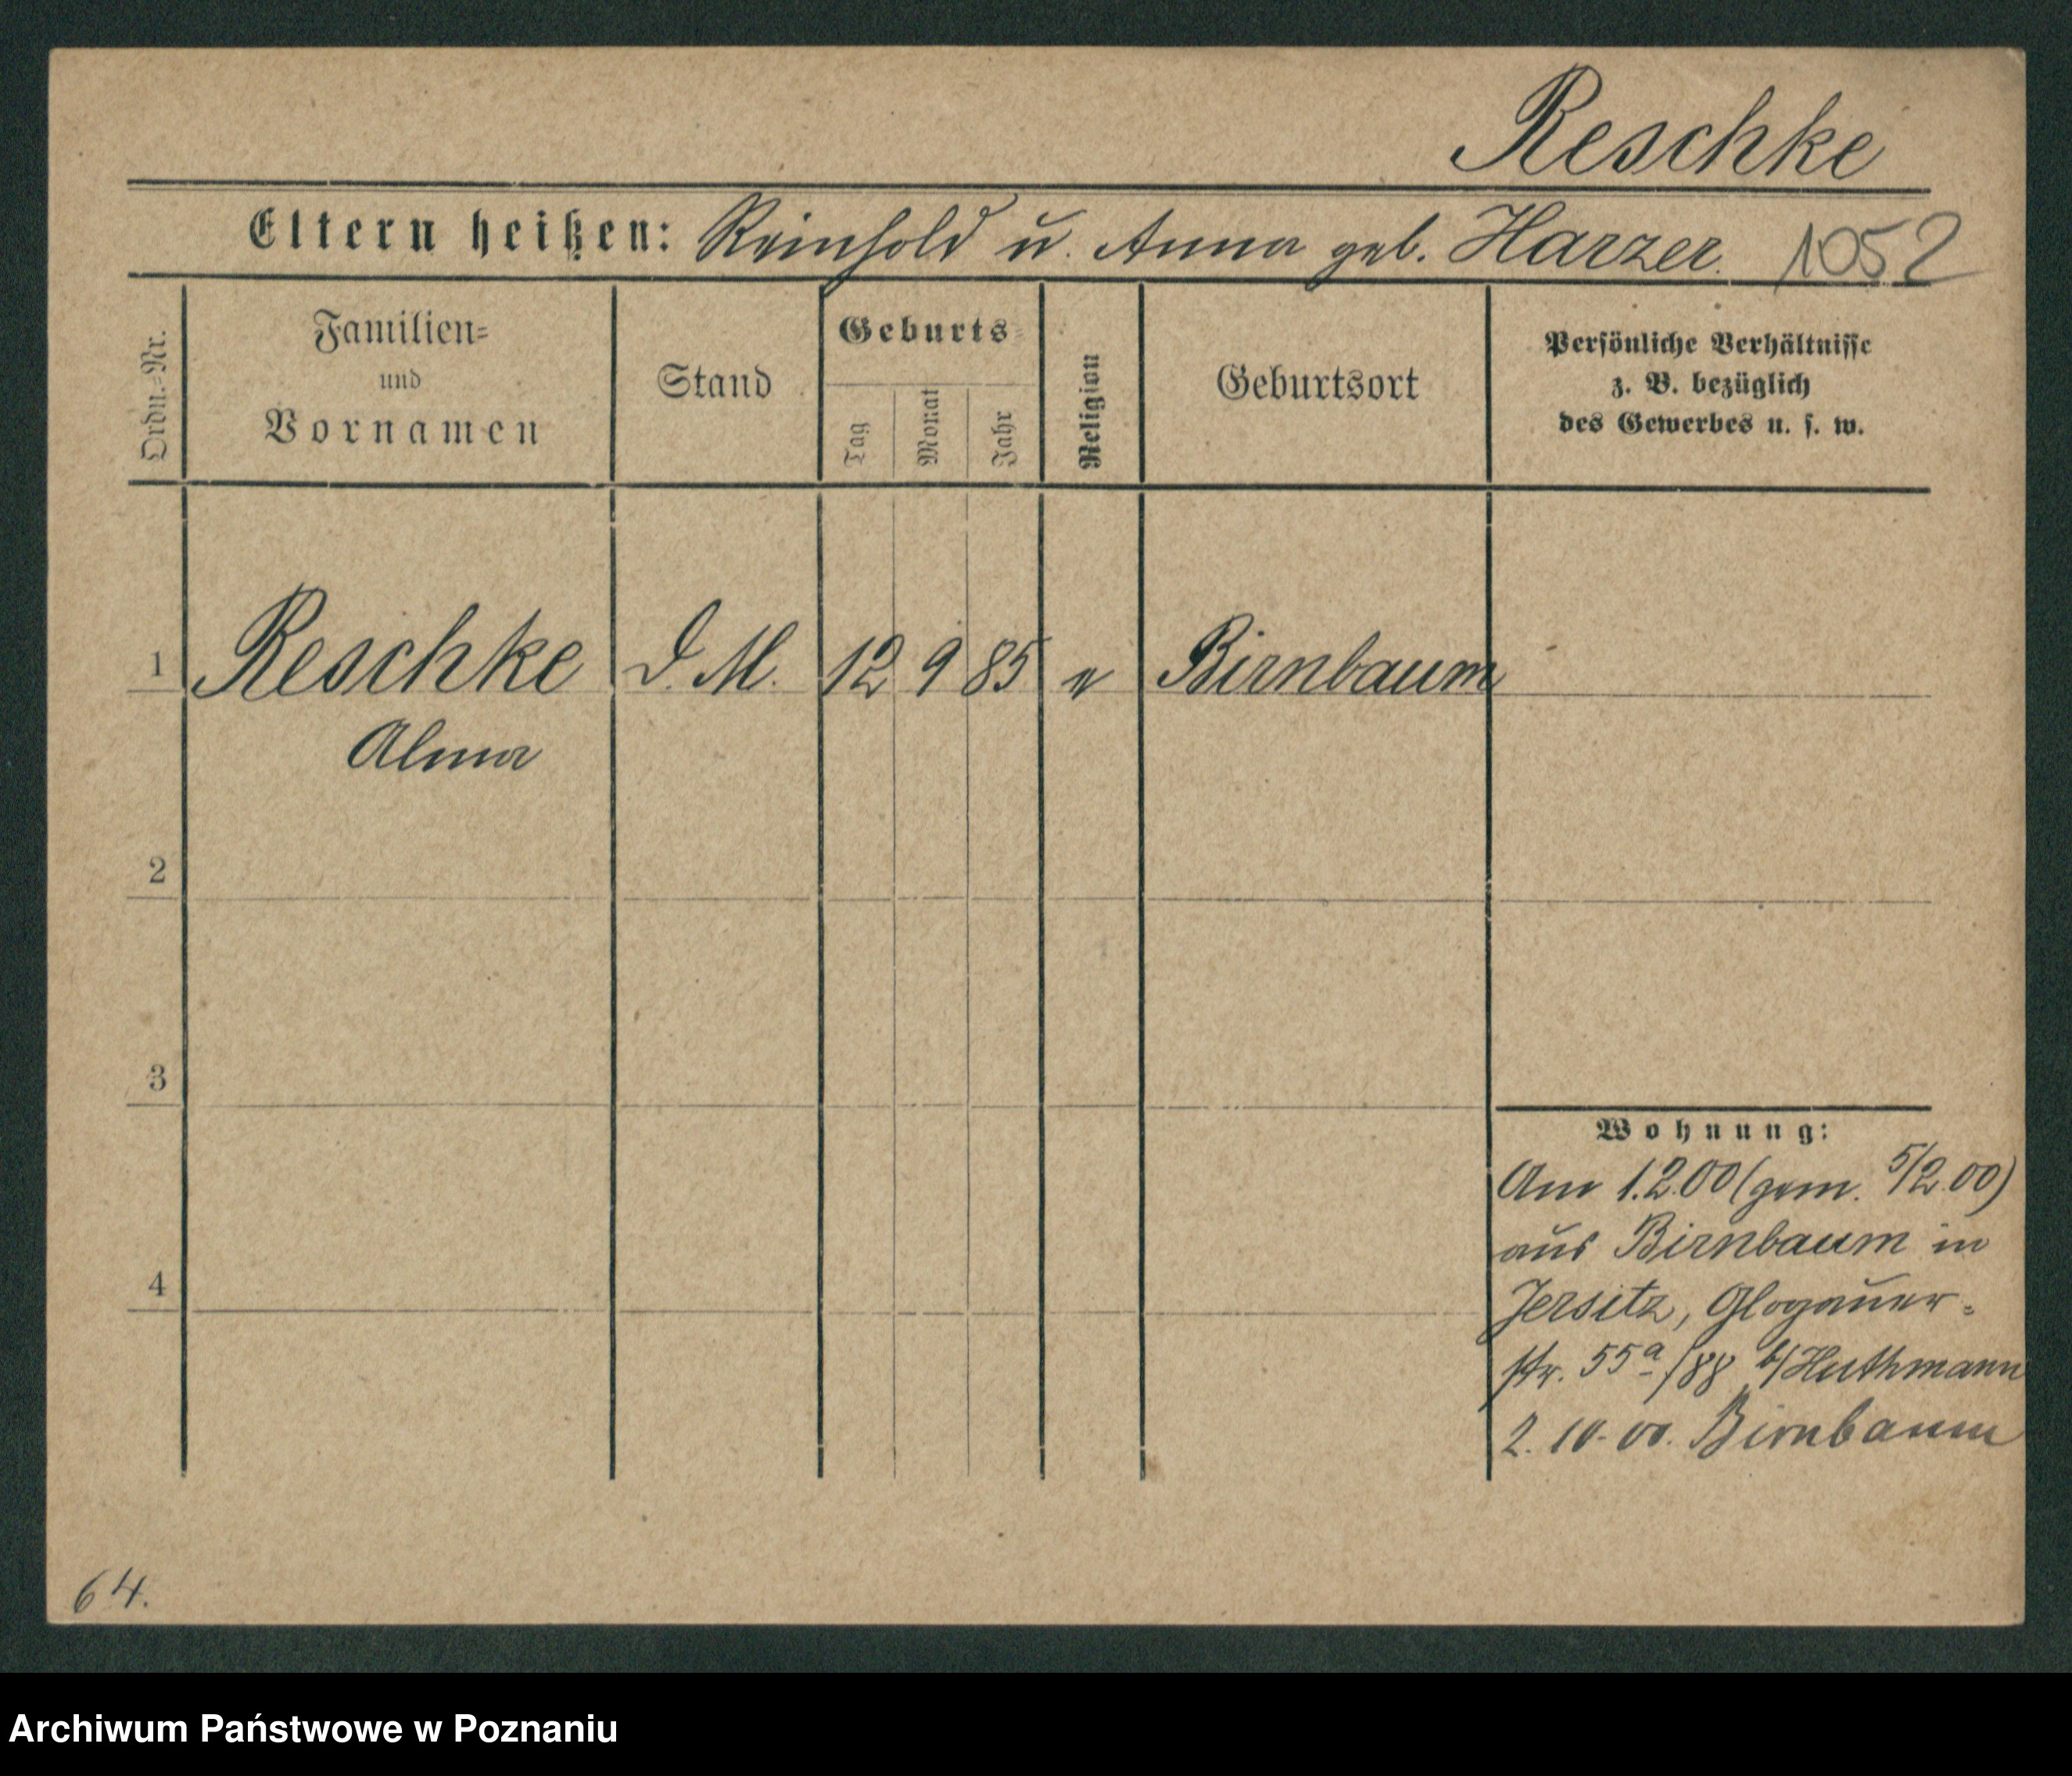 Reschke
Eltern heißen: Reinhold u. Anna geb. Harzer. 1052
Ordn.-Nr.
Familien-
und
Vornamen
Stand
Geburts-
Tag
Monat
Jahr
Religion
Geburtsort
Persönliche Verhältnisse
z. B. bezüglich
des Gewerbes u. s. w.
1 Reschke D. M. 12 9 85 e Birnbaum
Alma
2
3
4
Wohnung:
Am 1.2.00 (gem. 5/2.00)
aus Birnbaum in
Jersitz, Glogauer-
str. 55a/88 b/Huthmann
2. 10. 00. Birnbaum
64.
Archiwum Państwowe w Poznaniu